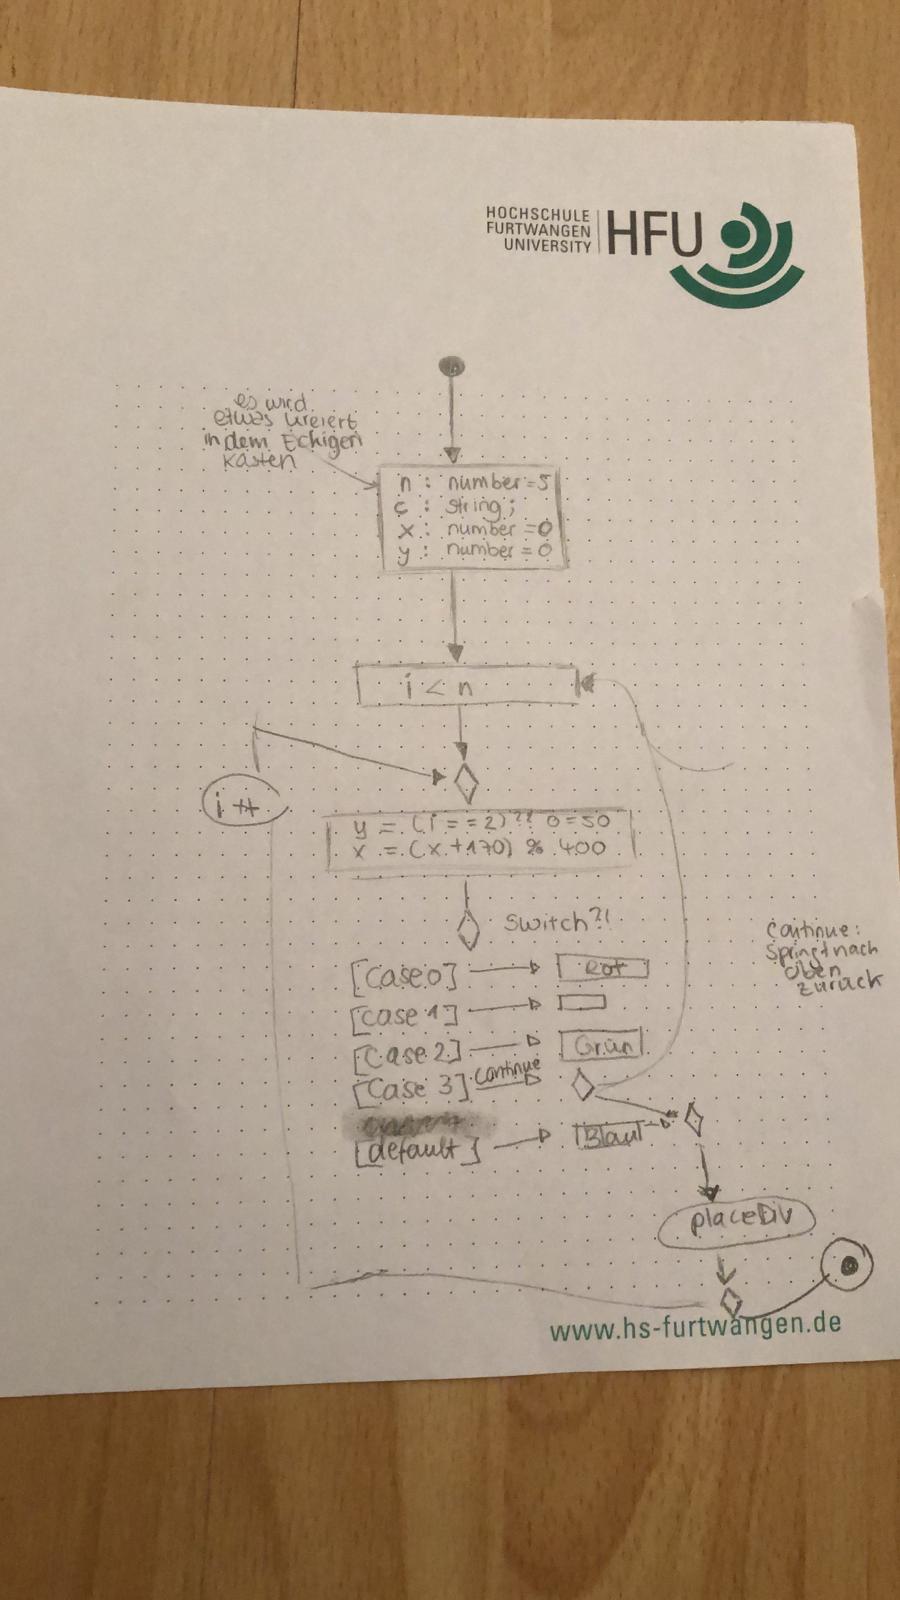 HOCHSCHULE
FURTWANGEN
UNIVERSITY
HFU
es wird
etwas kreiert
in dem Eckigen
kasten
n : number = 5
c : string;
x : number = 0
y : number = 0
i < n
i ++
y = (i == 2) ?? 0 = 50
x = (x + 170) % 400
Switch?!
[Case 0] Rot
[case 1]
[Case 2] Grün
[Case 3] Continue
[default] Blau
Continue:
Springt nach
oben
zurück
placeDiv
www.hs-furtwangen.de